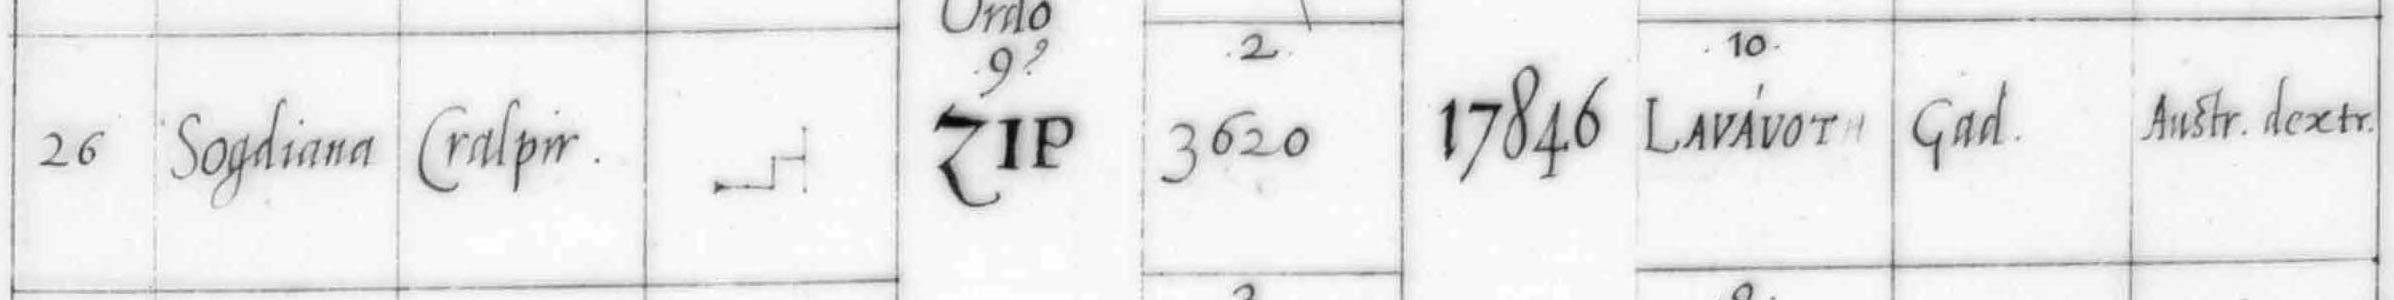 Ordo
9?
2
10.
26 Sogdiana Cralpir. ZIP 3620 17846 LAVÁVOTH Gad. Austr. dextr.